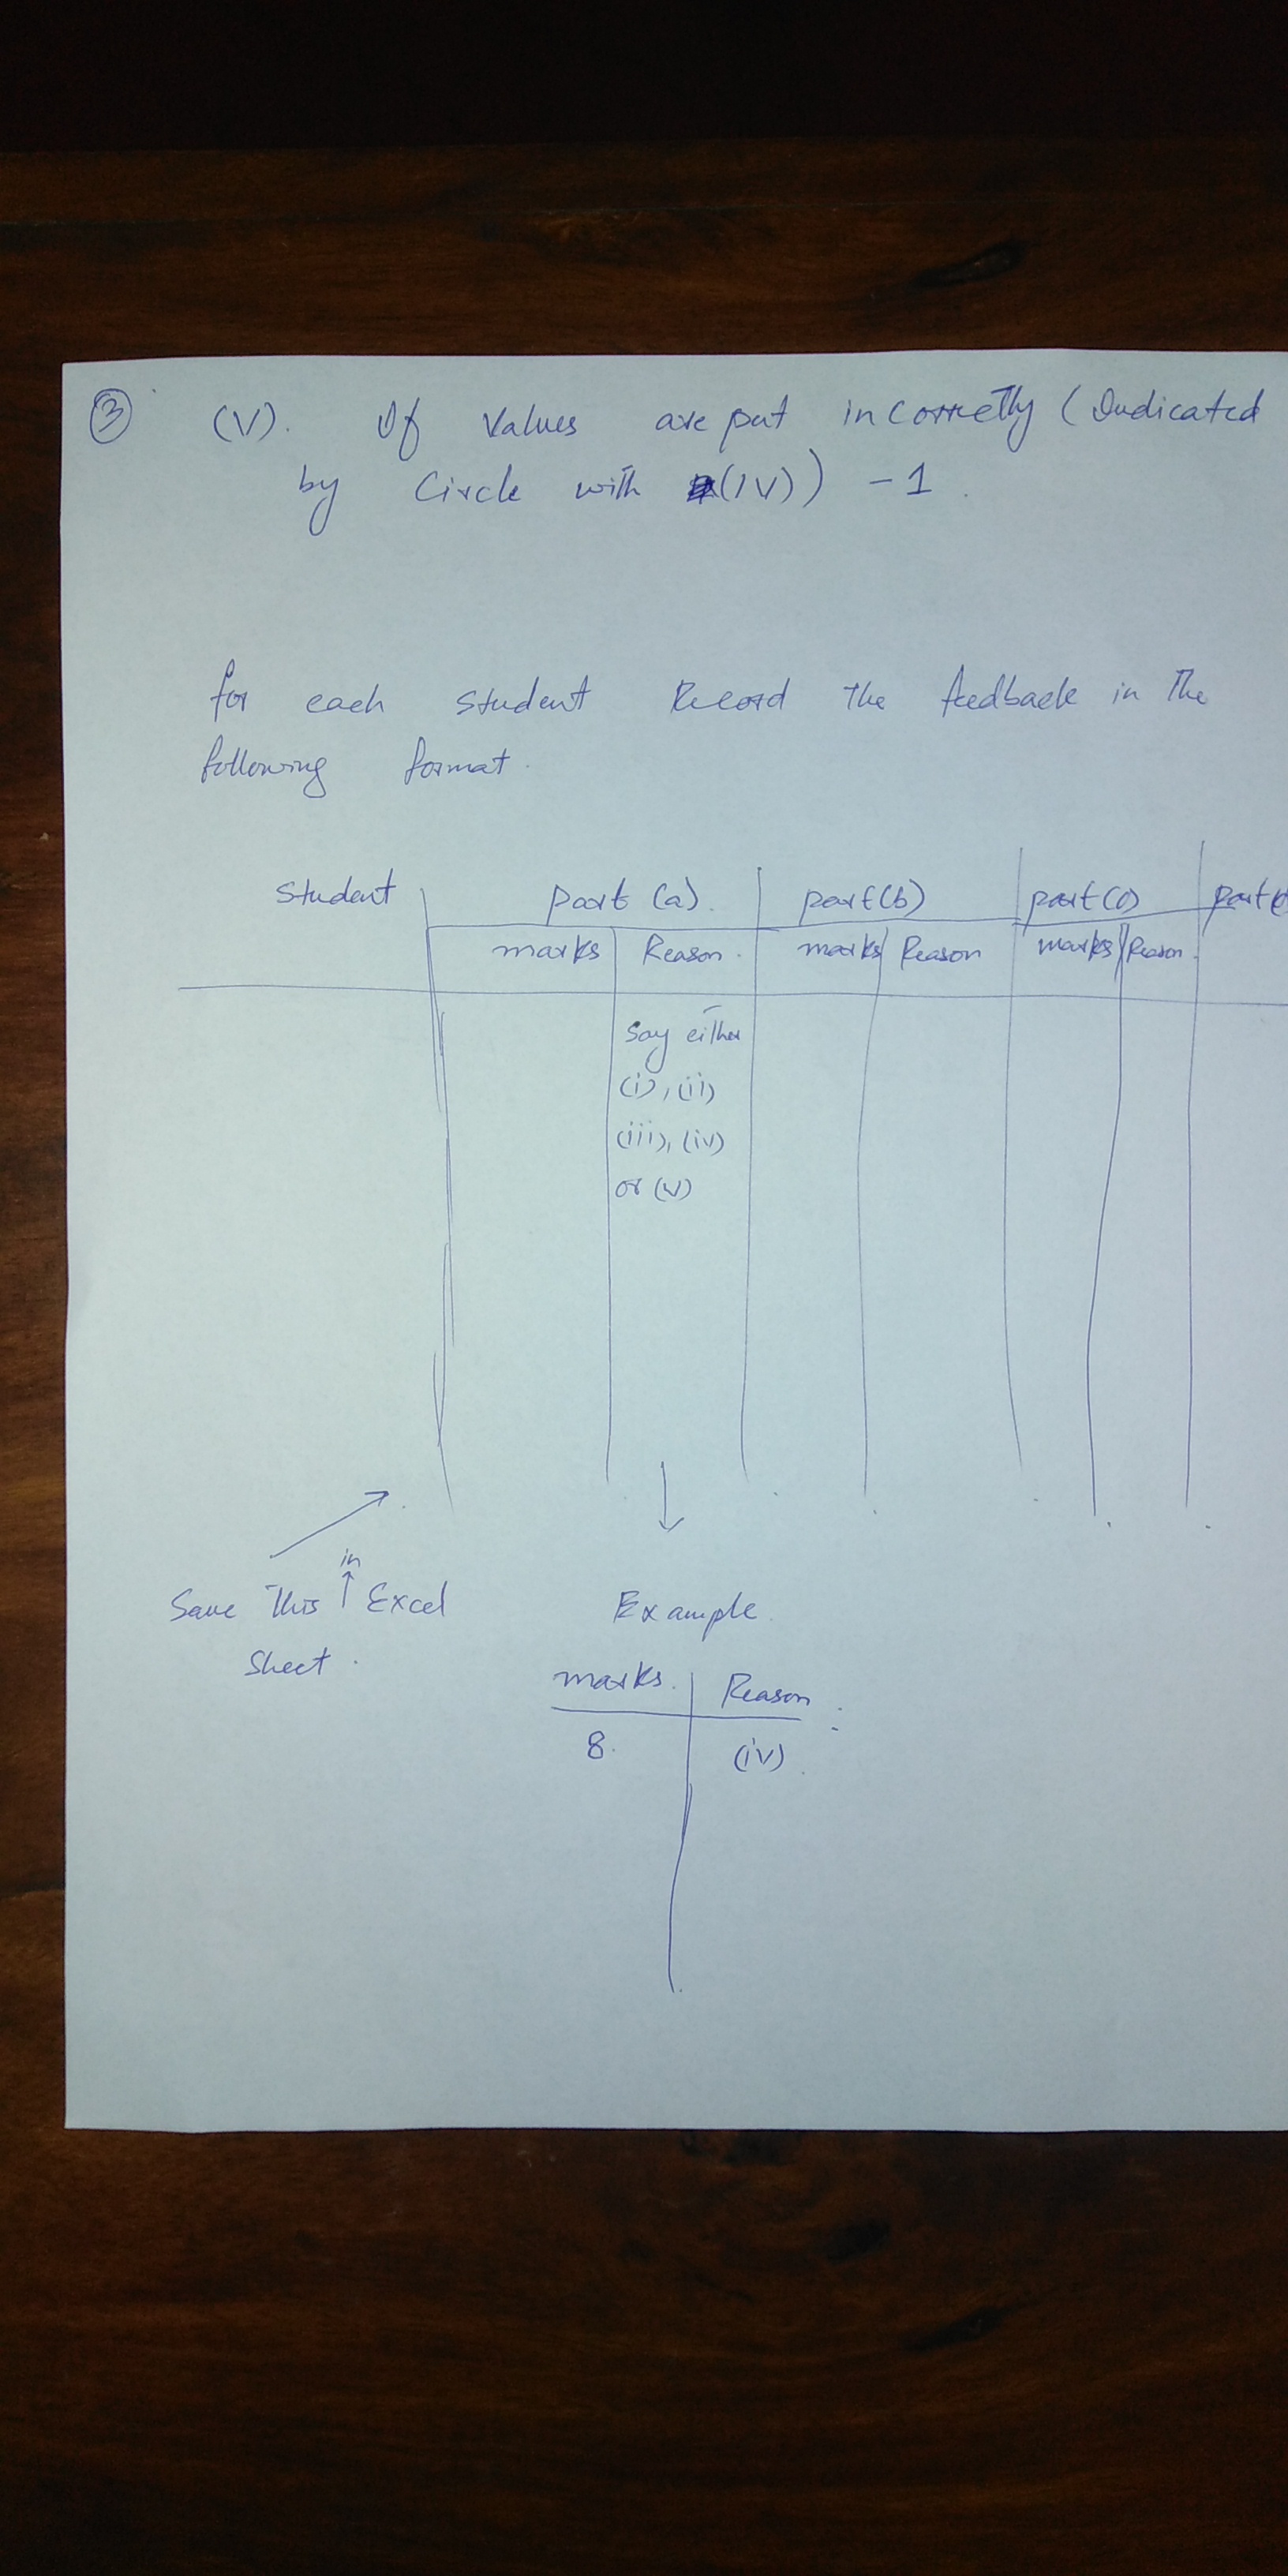 3 (V). If Values are put incorrectly (Indicated
by Circle with (IV)) -1.
for each student Record the feedback in the
following format.
Student part (a). part(b) part(c) part(
marks Reason. marks Reason marks Reason.
Say either
(i), (ii)
(iii), (iv)
or (v)
Save This in Excel
Sheet.
Example.
marks. Reason
8. (iv).